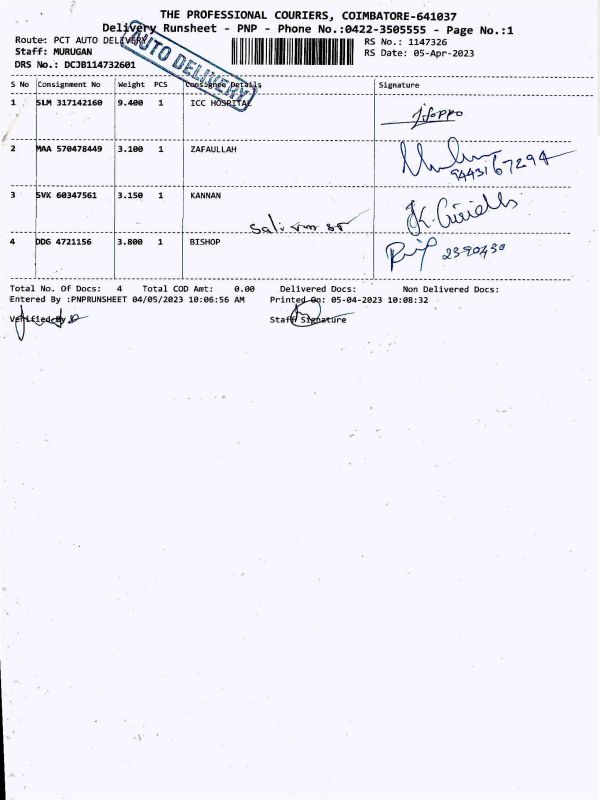 THE PROFESSIONAL COURIERS, COIMBATORE-641037
Delivery Runsheet - PNP - Phone No.:0422-3505555 - Page No.:1
Route: PCT AUTO DELIVERY
RS No.: 1147326
Staff: MURUGAN
RS Date: 05-Apr-2023
DRS No.: DCJB114732601
AUTO DELIVERY
S No Consignment No Weight PCS Consignee Details Signature
1 SLM 317142160 9.400 1 ICC HOSPITAL
2 MAA 570478449 3.100 1 ZAFAULLAH
9443167294
3 SVK 60347561 3.150 1 KANNAN
4 DDG 4721156 3.800 1 BISHOP
Total No. Of Docs: 4 Total COD Amt: 0.00 Delivered Docs: Non Delivered Docs:
Entered By :PNPRUNSHEET 04/05/2023 10:06:56 AM Printed On: 05-04-2023 10:08:32
Verified By
Staff Signature